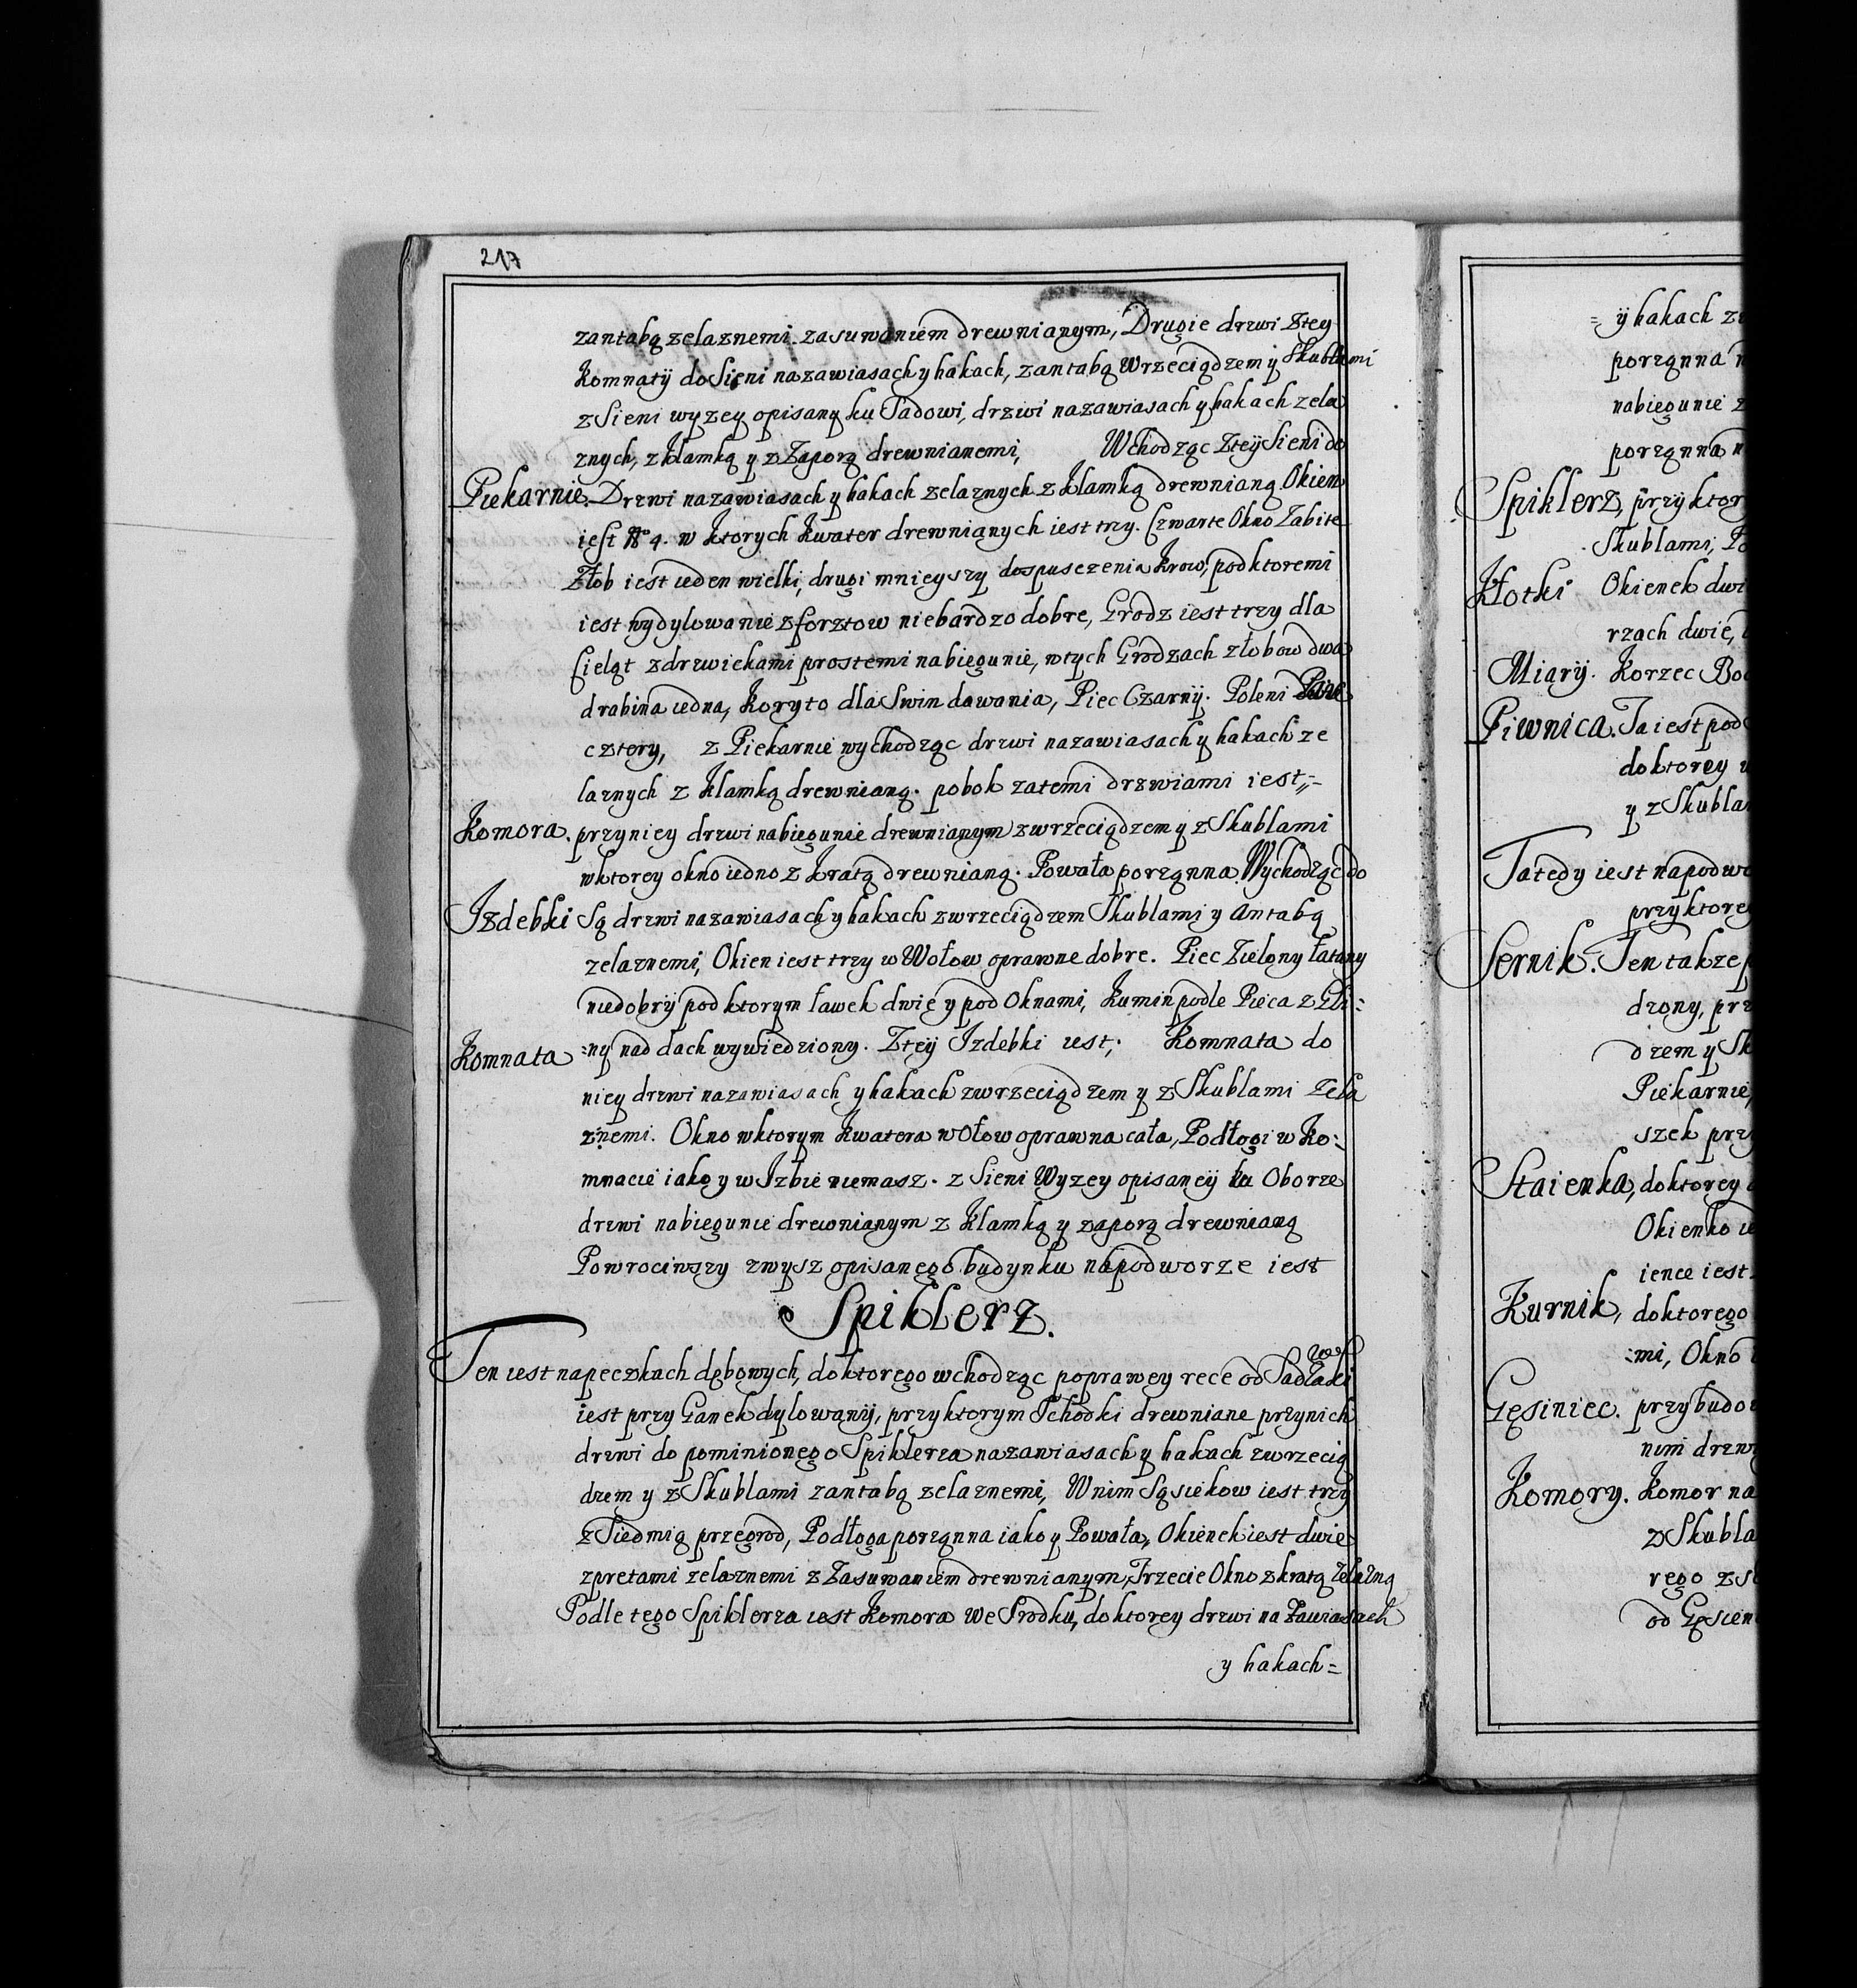 217
zantabą zelaznemi. zasuwaniem drewnianym, Drugie drzwi Ztey
komnaty do Sieni nazawiasach y hakach, zantabą Wrzeciądzem y Skublami
z Sieni wyzey opisany ku Sadowi, drzwi nazawiasach y hakach zela
znych, z klamką y z Zaporą drewnianemi, Wchodząc Zteÿ Sieni do
Piekarnie. Drzwi nazawiasach y hakach zelaznych z klamką drewnianą Okien
iest No 4. w ktorych kwater drewnianych iest trzy. Czwarte Okno Zabite
Złob iest ieden wielki, drugi mnieyszy dospusczenia krow, pod ktoremi
iest wydylowanie z forsztow niebardzo dobre, Grodz iest trzy dla
Cieląt zdrzwiekami prostemi nabiegunie, wtych Grodzach złobow dwa
drabina iedna, koryto dla Swin dawania, Piec Czarnÿ. Poleni
cztery, z Piekarnie wychodząc drzwi nazawiasach y hakach ze
laznych z klamką drewnianą. pobok zatemi drzwiami iest,,=
Komora. przyniey drzwi nabiegunie drewnianym zwrzeciądzem y z Skublami
wktorey okno iedno z kratą drewnianą. Powała porządnna Wychodząc do
Izdebki Są drzwi nazawiasach y hakach zwrzeciądzem Skublami y Antabą
zelaznemi, Okien iest trzy w Wołow oprawne dobre. Piec Zielony łatany
niedobrÿ pod ktorym ławek dwie y pod Oknami, kumin podle Pieca z Gli=
Komnata =ny nad dach wywiedziony. Zteÿ Izdebki iest; Komnata do
niey drzwi nazawiasach y hakach zwrzeciądzem y z Skublami zela
znemi. Okno wktorym kwatera w Ołow oprawna cała, Podłogi w ko=
mnacie iako y w Izbie niemasz. z Sieni Wyzey opisaneÿ ku Oborze
drzwi nabiegunie drewnianym z klamką y zaporą drewnianą
Powrociwszy zwysz opisanego budynku napodworze iest
Spiklerz.
Ten iest napeczkach dębowych, doktorego wchodząc poprawey rece od
iest przy Ganek dylowanÿ, przyktorym Schodki drewniane przynich
drzwi do pominionego Spiklerza nazawiasach y hakach zwrzecią
dzem y z Skublami zantabą zelaznemi, Wnim Sąsiekow iest trzy
z Siedmią przegrod, Podłoga porządnna iako y Powała, Okienek iest dwie
zpretami zelaznemi z Zasuwaniem drewnianym, Trzecie Okno zkratą zelazną
Podle tego Spiklerza iest Komora We Srodku, doktorey drzwi na Zawiasach
y hakach=
=ÿ hakach
porządnna
nabiegunie
porządnna
Spiklerz, przyktor
Skublami,
Kłotki Okienek dwi
rzach dwie,
Miarÿ. Korzec
Piwnica. Ta iest pod
doktorey
y z Skubla
Tatedy iest napodwo
przyktore
Sernik. Ten takze
dzony, prz
dzem y Sk
Piekarnie,
szek prz
Staienka, doktorey
Okienko ie
ience iest.
Kurnik, doktorego
=mi, Okno
Gęsiniec. przybudo
nim drzw
Komory. Komor na
z Skubla
rego
od Gęsien